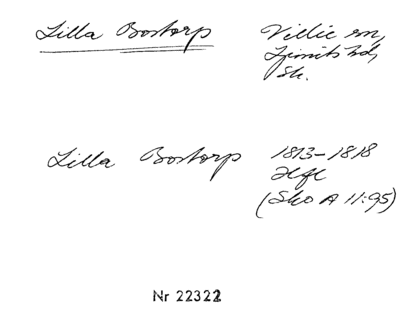 Lilla Bostorp Villie sn,
Ljunits hd,
Sk.
Lilla Bostorp 1813-1818
Hfl
(Sko A 11:95)
Nr 22322